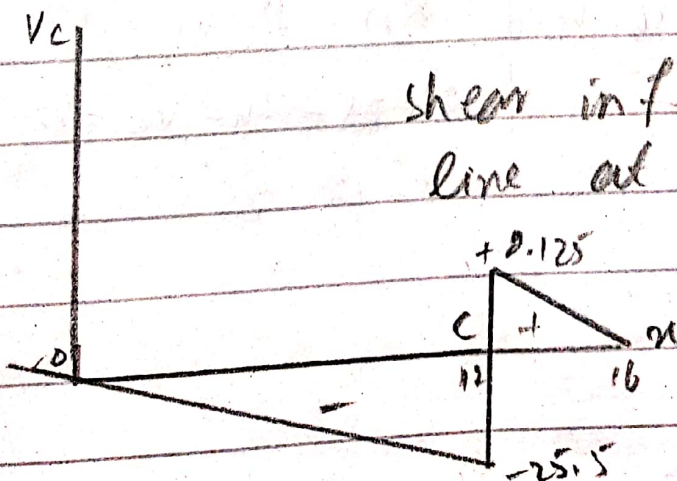 Vc
shear inf
line at
+8.125
C + x
0
12 16
-
-25.5